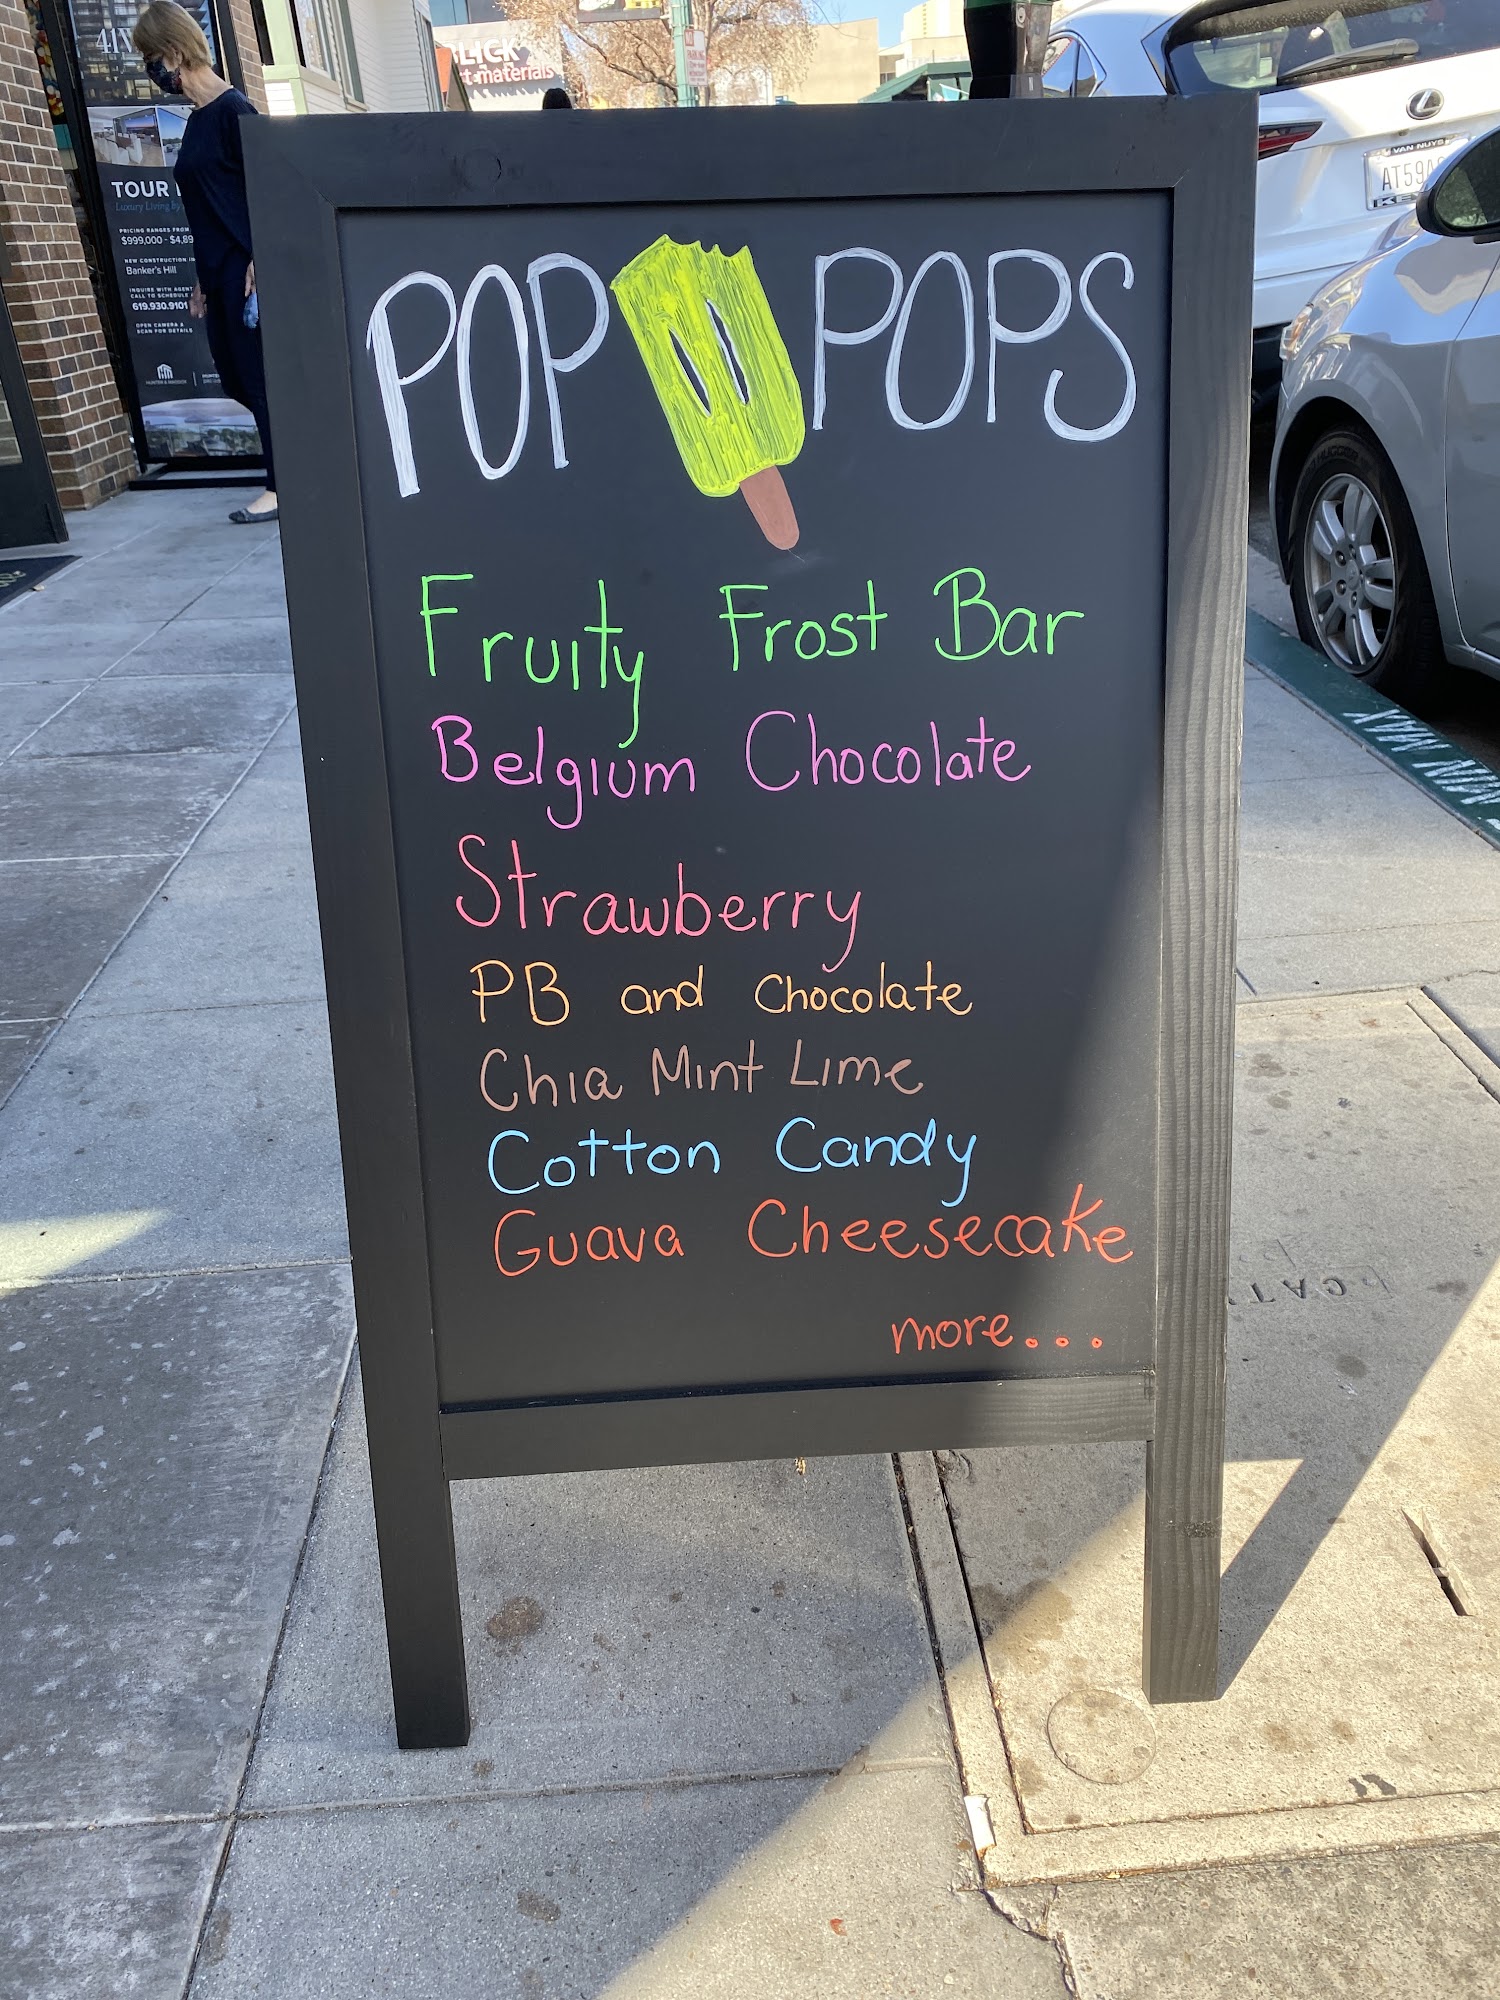 POP N POPS
Fruity Frost Bar
Belgium Chocolate
Strawberry
PB and Chocolate
Chia Mint Lime
Cotton Candy
Guava Cheesecake
more...
TOUR
Luxury Living by
PRICING RANGES FROM
$999,000 - $4,89
NEW CONSTRUCTION IN
Banker's Hill
INQUIRE WITH AGENT
CALL TO SCHEDULE
619.930.9101
OPEN CAMERA &
SCAN FOR DETAILS
HUNTER & MADDOX
LICK
t materials
VAN NUYS
AT59A
KE
MIN MAX
CATV